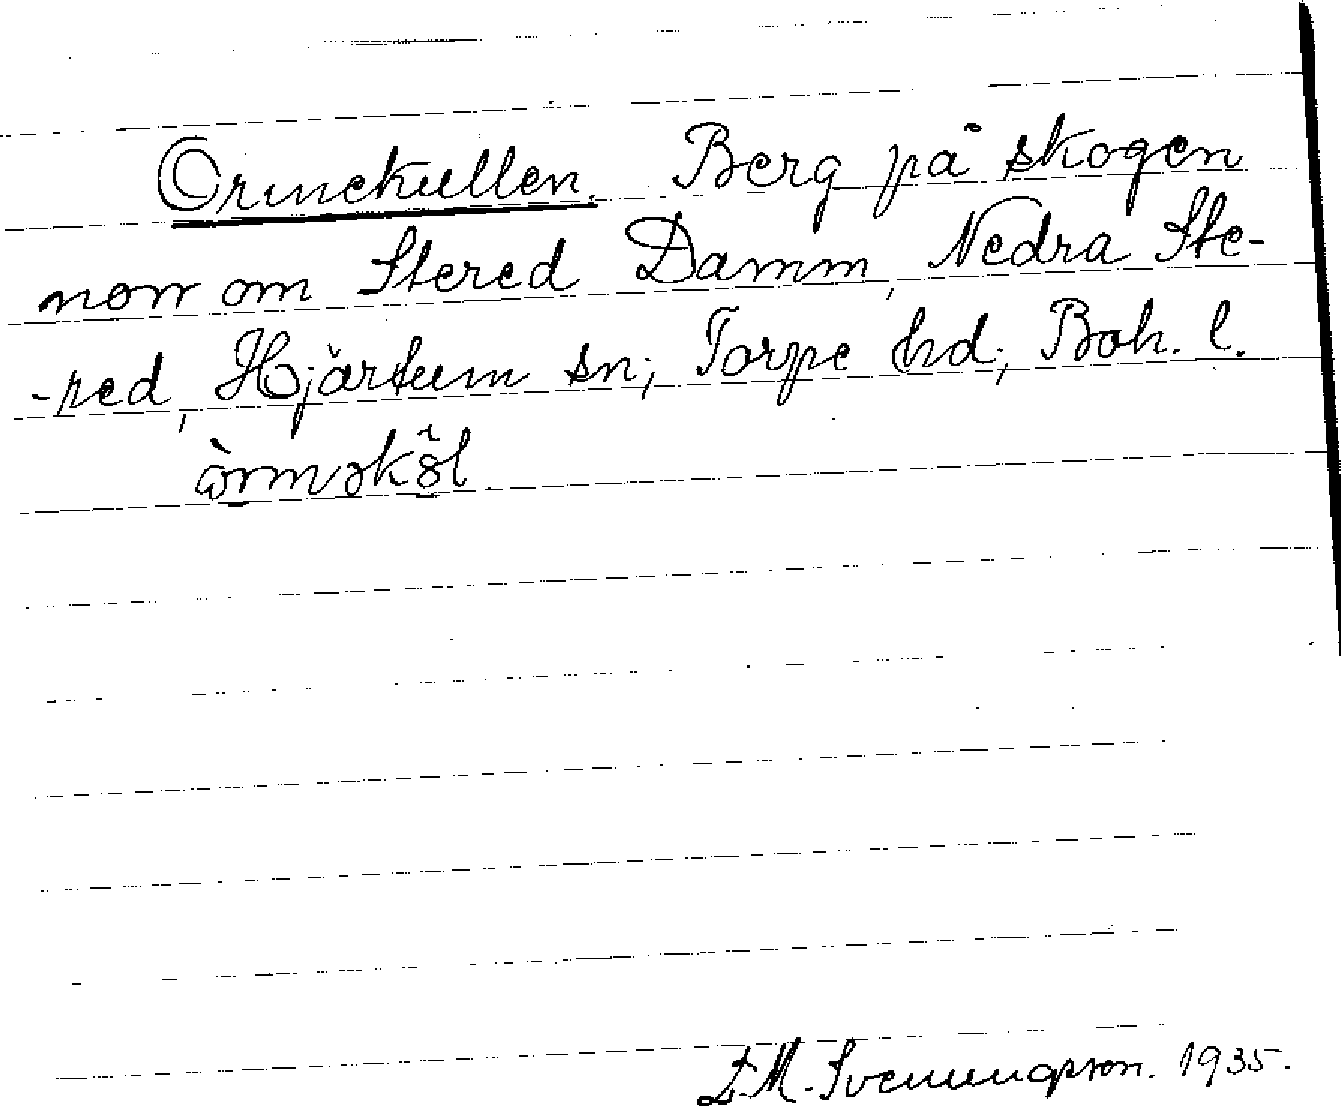 Ormekullen. Berg på skogen
norr om Stered Damm, Nedra Ste-
-red, Hjärtum sn; Torpe hd; Boh. l.
òrməkl
D.M. Svenungsson. 1935.